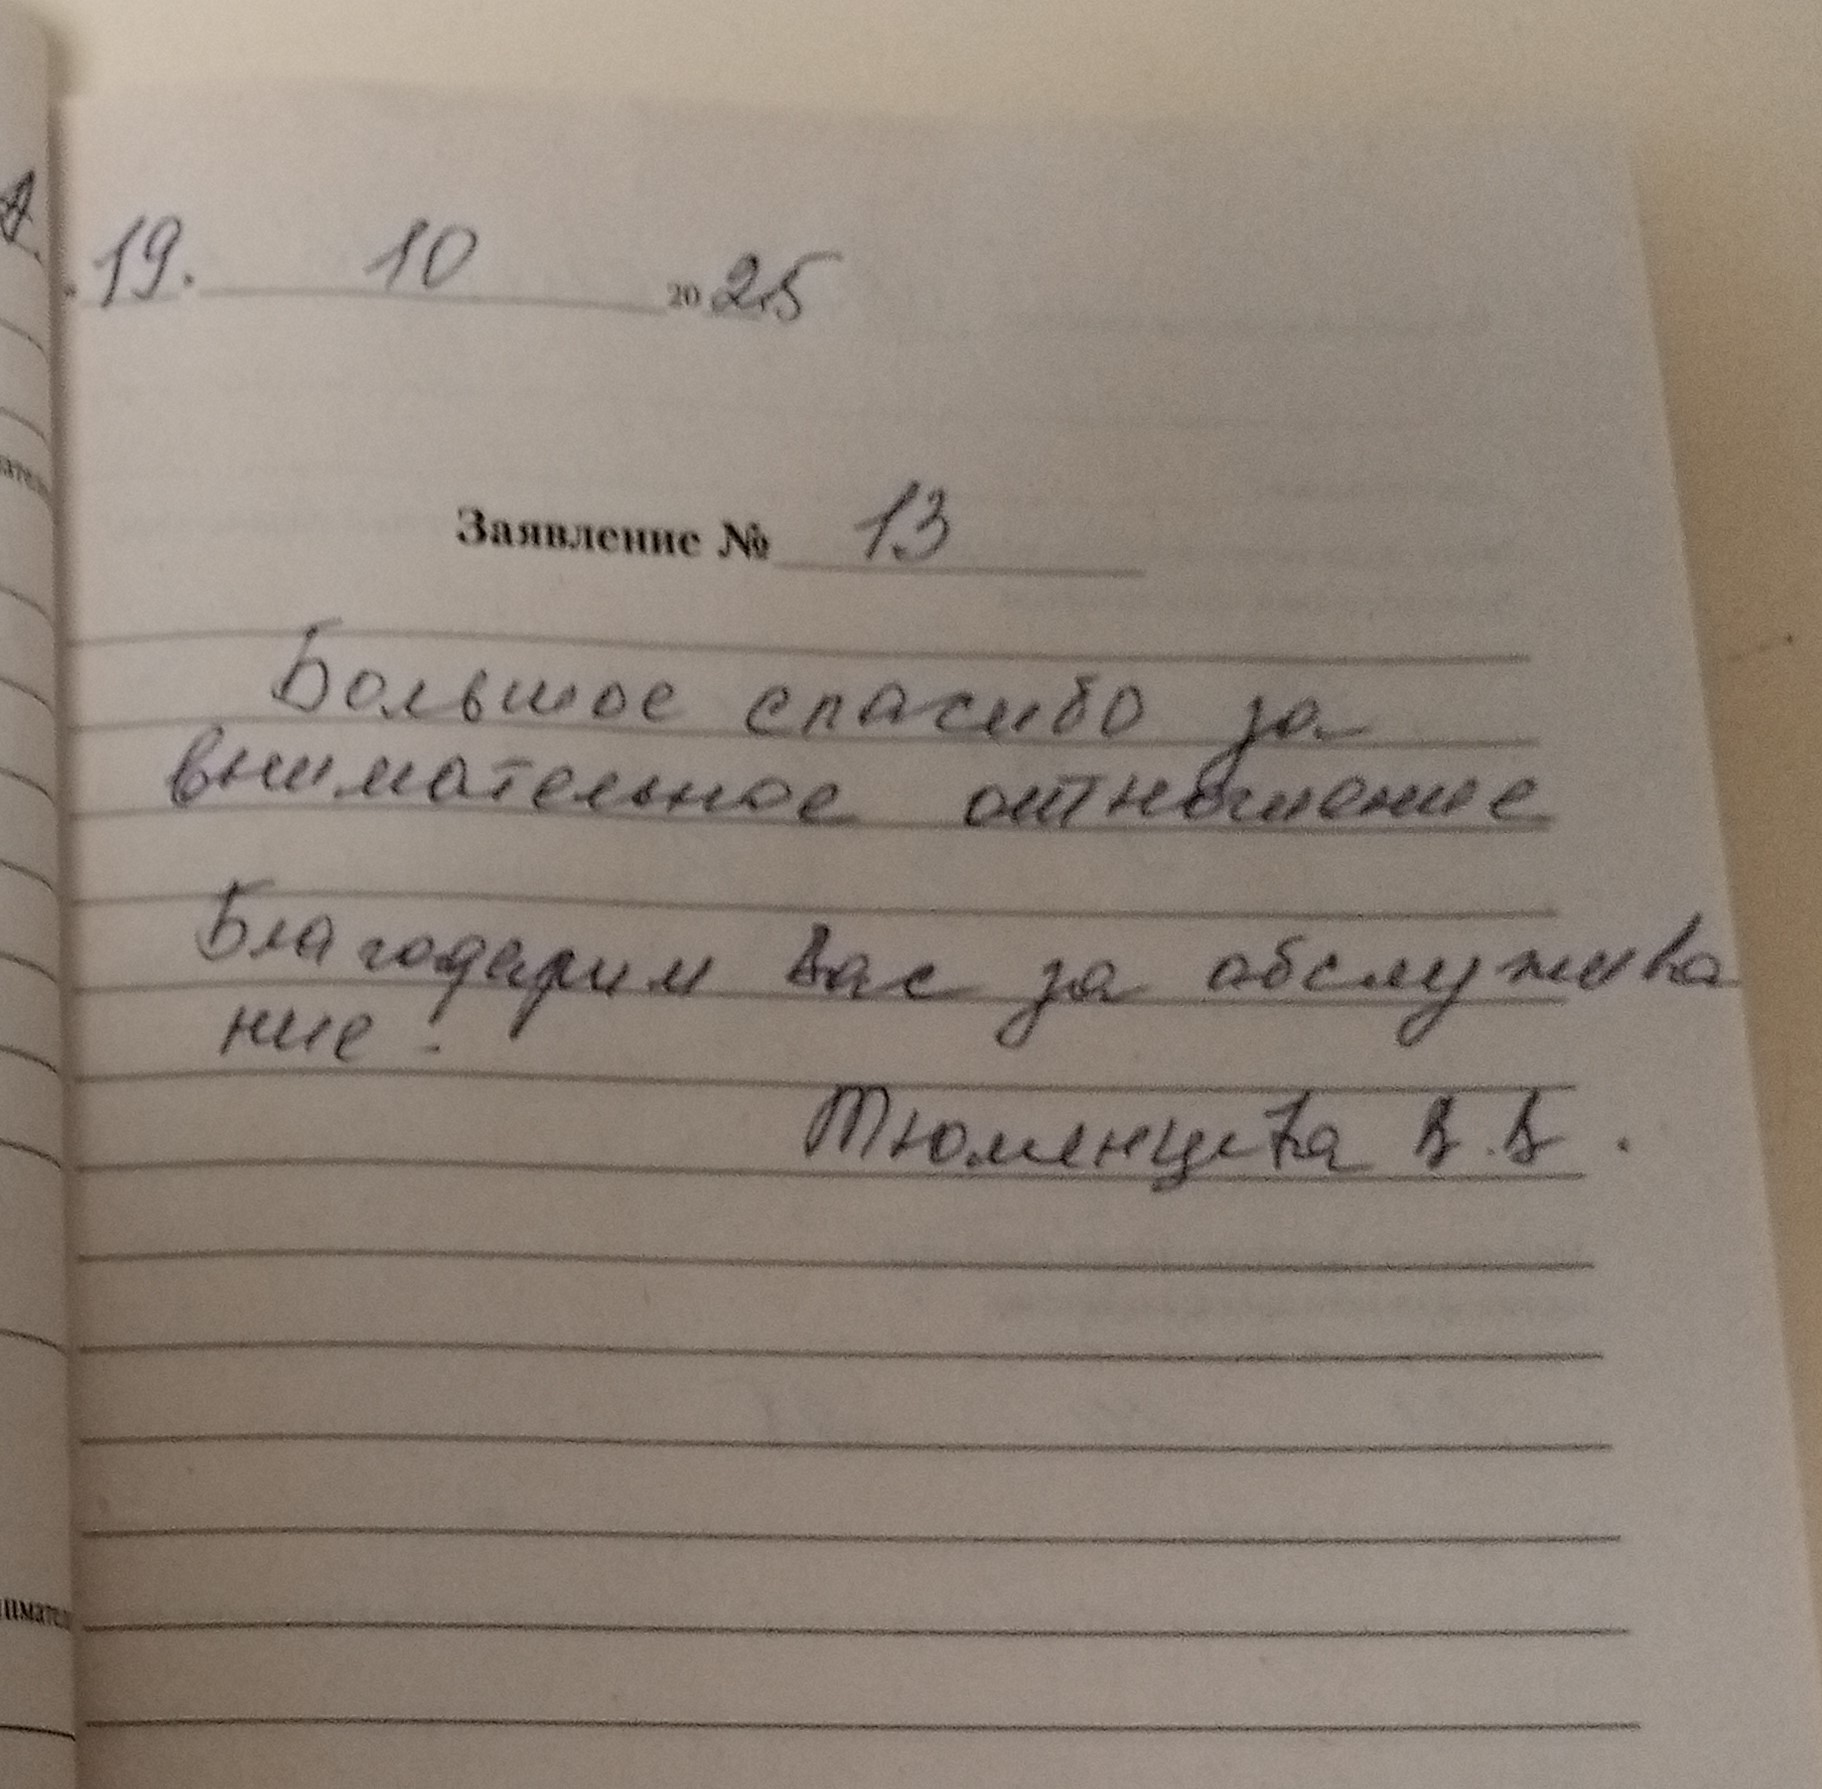 19. 10 2025
Заявление № 13
Большое спасибо за
внимательное отношение
Благодарим Вас за обслужива
ние.
В.В.